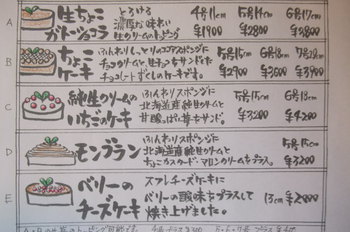 A
生ちょこガトーショコラ
とろける
濃厚な味わい
生クリームのトッピング
4号11cm 5号14cm 6号17cm
¥1900 ¥2800 ¥3800
B
ちょこケーキ
ふんわりしっとりココアスポンジに
チョコクリームと生チョコをサンドした
チョコレートずくしのケーキです。
5号15cm 6号18cm 7号21cm
¥2900
C
純生クリームのいちごのケーキ
ふんわりスポンジに
北海道産純生クリームと
甘酸っぱい苺をサンド。
5号15cm 6号18cm
¥3200 ¥4200
D
モンブラン
ふんわりスポンジに
北海道産純生クリームと
ちょこカスタード・マロンクリームをプラス。
5号15cm
¥3200
E
ベリーのチーズケーキ
スフレチーズケーキに
ベリーの酸味をプラスして
焼き上げました。
13cm ¥2000